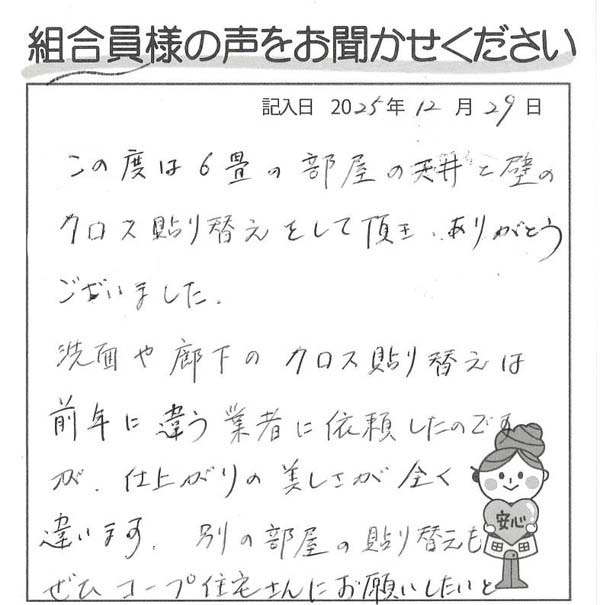 組合員様の声をお聞かせください
記入日 2025年 12月 29日
この度は6畳の部屋の天井と壁の
クロス貼り替えをして頂き、ありがとう
ございました。
洗面や廊下のクロス貼り替えは
前年に違う業者に依頼したのです
が、仕上がりの美しさが全く
違います。別の部屋の貼り替えも
安心
ぜひコープ住宅さんにお願いしたいと